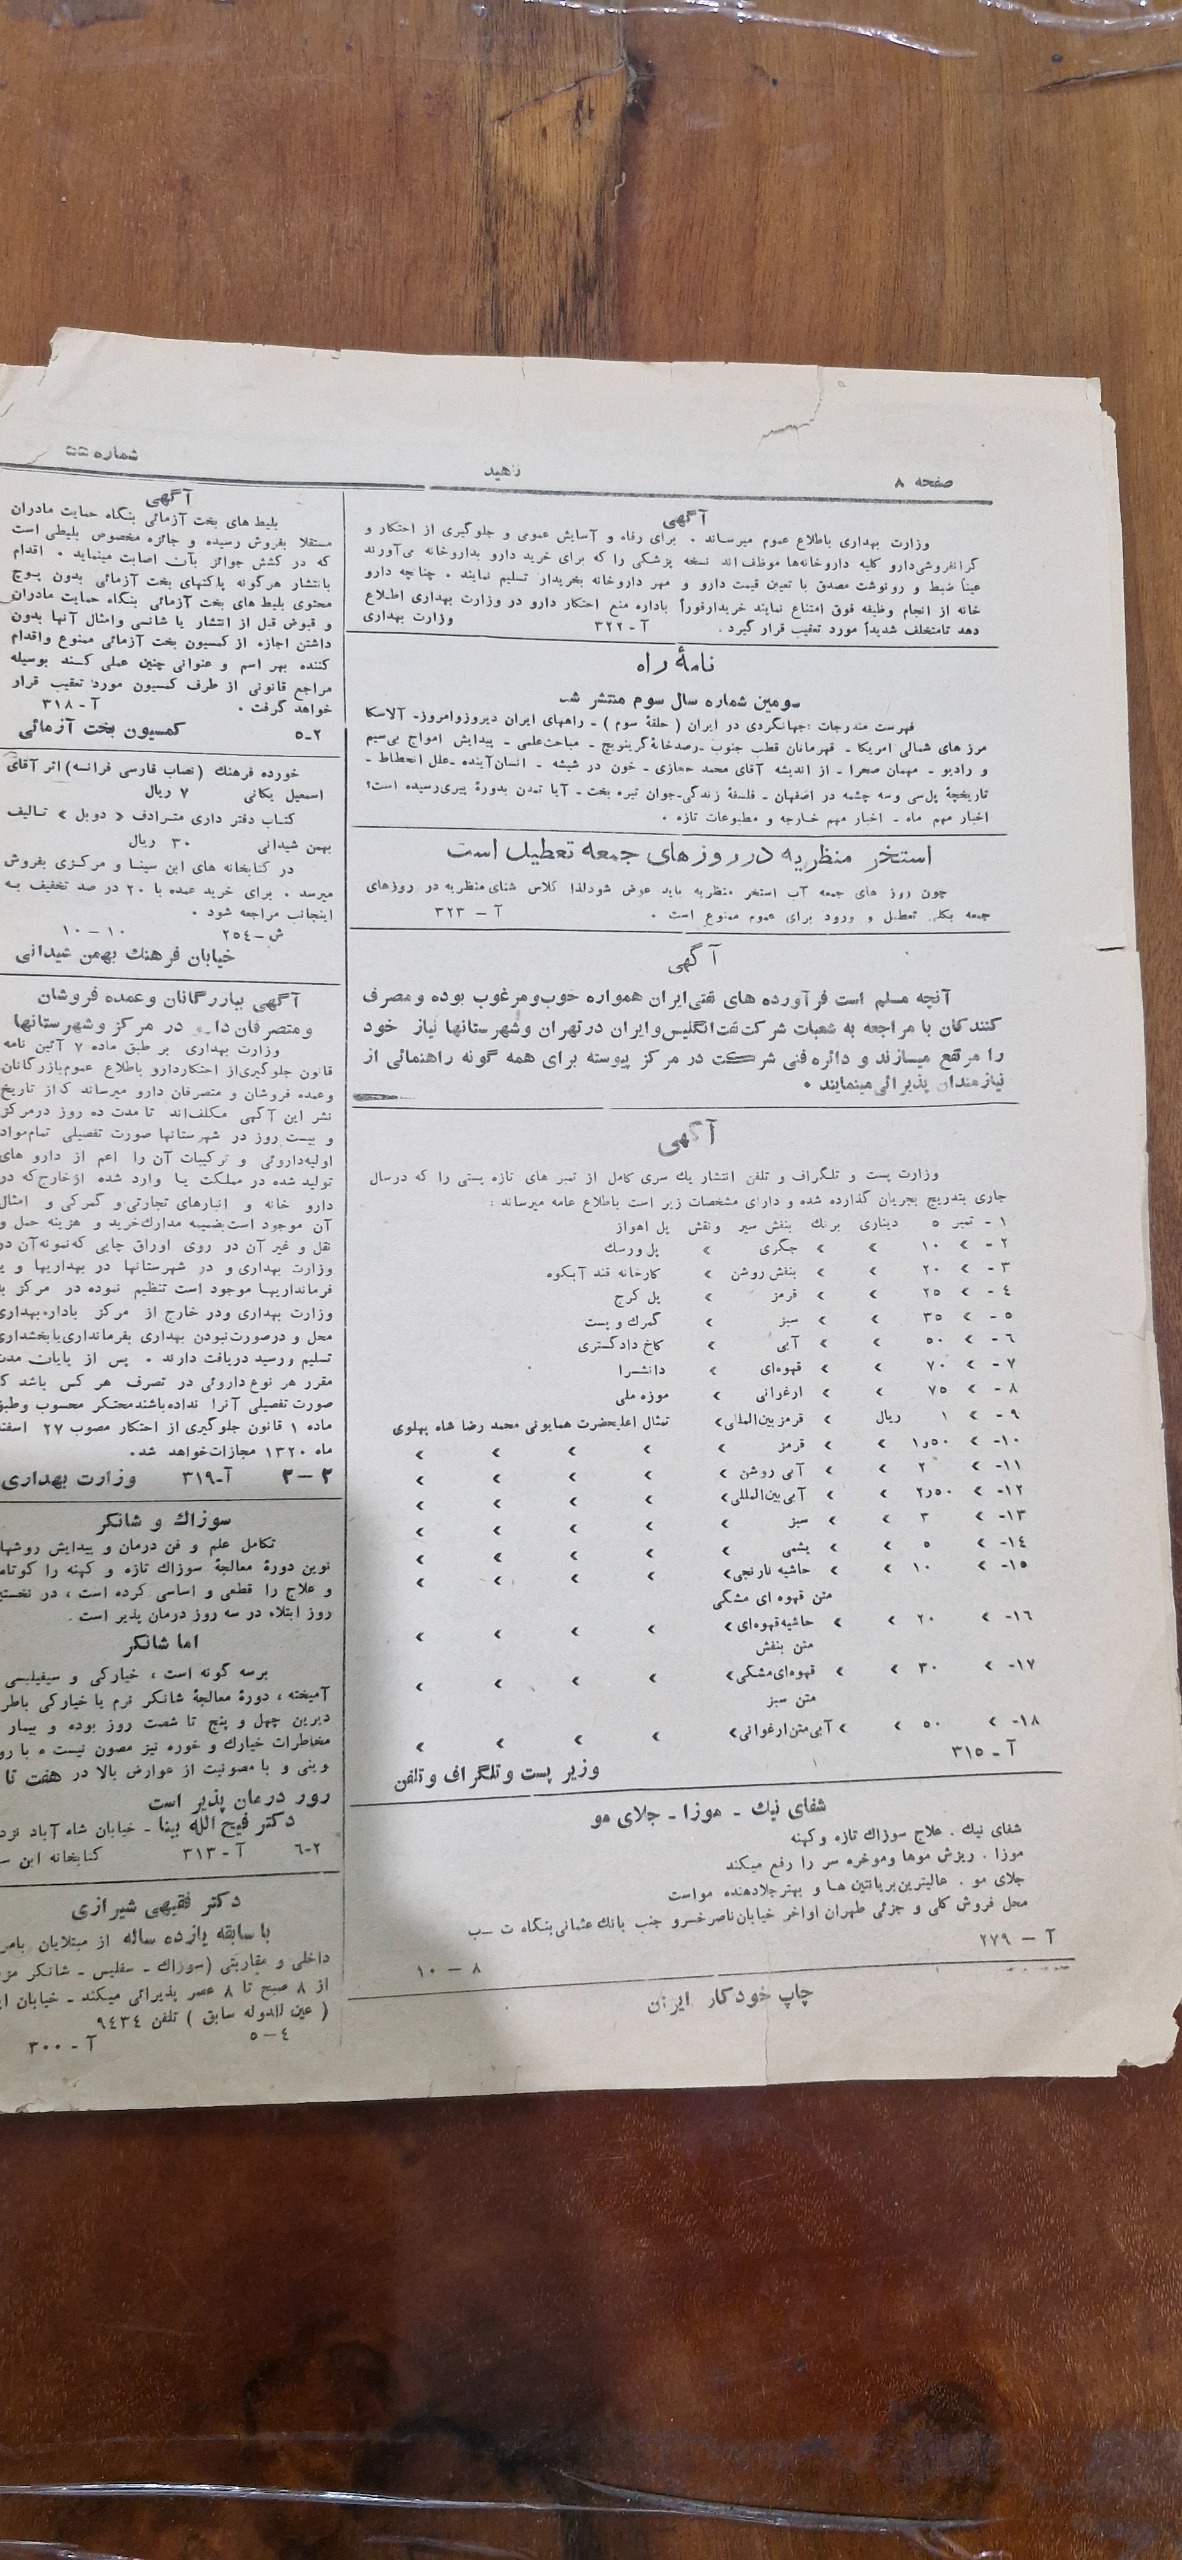 صفحه ۸
ناهید
شماره ۵۵
آگهی
وزارت بهداری باطلاع عموم میرساند . برای رفاه و آسایش عمومی و جلوگیری از احتکار و
گرانفروشی‌دارو کلیه داروخانه‌ها موظف‌اند نسخه پزشکی را که برای خرید دارو بداروخانه می‌آورند
عیناً ضبط و رونوشت مصدق با تعیین قیمت دارو و مهر داروخانه بخریدار تسلیم نمایند . چنانچه دارو
خانه از انجام وظیفه فوق امتناع نمایند خریدارفوراً باداره منع احتکار دارو در وزارت بهداری اطلاع
دهد تامتخلف شدیداً مورد تعقیب قرار گیرد . آ-۳۲۲ وزارت بهداری
نامهٔ راه
سومین شماره سال سوم منتشر شد
فهرست مندرجات :جهانگردی در ایران ( حلقهٔ سوم ) - راههای ایران دیروزوامروز- آلاسکا
مرز های شمالی امریکا - قهرمانان قطب جنوب -رصدخانهٔ گرینویچ - مباحث‌علمی - پیدایش امواج بی‌سیم
و رادیو - مهمان صحرا - از اندیشه آقای محمد حجازی - خون در شیشه - انسان‌آینده -علل انحطاط -
تاریخچهٔ پل‌سی وسه چشمه در اصفهان - فلسفهٔ زندگی-جوان تیره بخت - آیا تمدن بدورهٔ پیری‌رسیده است؟
اخبار مهم ماه - اخبار مهم خارجه و مطبوعات تازه .
استخر منظریه در روزهای جمعه تعطیل است
چون روز های جمعه آب استخر منظریه باید عوض شودلذا کلاس شنای‌منظریه در روزهای
جمعه بکلی تعطیل و ورود برای عموم ممنوع است . آ - ۳۲۳
آگهی
آنچه مسلم است فرآورده های نفتی‌ایران همواره خوب‌ومرغوب بوده ومصرف
کنندگان با مراجعه به شعبات شرکت‌نفت‌انگلیس‌وایران درتهران وشهرستانها نیاز خود
را مرتفع میسازند و دائره‌فنی شرکت در مرکز پیوسته برای همه گونه راهنمائی از
نیازمندان پذیرائی‌مینمایند .
آگهی
وزارت پست و تلگراف و تلفن انتشار یك سری کامل از تمبر های تازه پستی را که درسال
جاری بتدریج بجریان گذارده شده و دارای مشخصات زیر است باطلاع عامه میرساند :
۱ - تمبر ۵ دیناری برنك بنفش سیر ونقش پل اهواز
۲ - > ۱۰ > > جگری > پل‌ورسك
۳ - > ۲۰ > > بنفش روشن > کارخانه قند آبکوه
٤ - > ۲۵ > > قرمز > پل کرج
۵ - > ۳۵ > > سبز > گمرك و پست
٦ - > ۵۰ > > آبی > کاخ دادگستری
۷ - > ۷۰ > > قهوه‌ای > دانشسرا
۸ - > ۷۵ > > ارغوانی > موزه ملی
۹ - > ۱ ریال > قرمزبین‌المللی> تمثال اعلیحضرت همایونی محمد رضا شاه پهلوی
۱۰- > ۱٫۵۰ > > قرمز > > > > >
۱۱- > ۲ > > آبی روشن > > > > >
۱۲- > ۲٫۵۰ > > آبی‌بین‌المللی> > > > >
۱۳- > ۳ > > سبز > > > > >
۱٤- > ۵ > > یشمی > > > > >
۱۵- > ۱۰ > > حاشیه نارنجی> > > > >
متن قهوه ای مشگی
۱٦- > ۲۰ > > حاشیه‌قهوه‌ای> > > > >
متن بنفش
۱۷- > ۳۰ > > قهوه‌ای‌مشگی> > > > >
متن سبز
۱۸- > ۵۰ > >آبی‌متن‌ارغوانی> > > > >
آ - ۳۱۵
وزیر پست وتلگراف وتلفن
شفای نیك - موزا - جلای مو
شفای نیك . علاج سوزاك تازه وکهنه
موزا . ریزش موها وموخره سر را رفع میکند
جلای مو . عالیترین‌بریانتین ها و بهترجلادهنده مواست
محل فروش کلی و جزئی طهران اواخر خیابان‌ناصرخسرو جنب بانك عثمانی‌بنگاه ت -ب
آ - ۲۷۹
۸ - ۱۰
چاپ خودکار ایران
آگهی
بلیط های بخت آزمائی بنگاه حمایت مادران
مستقلا بفروش رسیده و جائزه مخصوص بلیطی است
که در کشش جوائز بآن اصابت مینماید . اقدام
بانتشار هرگونه پاکتهای بخت آزمائی بدون پوچ
محتوی بلیط های بخت آزمائی بنگاه حمایت مادران
و قبوض قبل از انتشار یا شانسی وامثال آنها بدون
داشتن اجازه از کمسیون بخت آزمائی ممنوع واقدام
کننده بهر اسم و عنوانی چنین عملی کند بوسیله
مراجع قانونی از طرف کمسیون مورد تعقیب قرار
خواهد گرفت . آ - ۳۱۸
۵-۲ کمسیون بخت آزمائی
خورده فرهنك (نصاب فارسی فرانسه) اثر آقای
اسمعیل یکانی ۷ ریال
کتاب دفتر داری مترادف « دوبل » تالیف
بهمن شیدانی ۳۰ ریال
در کتابخانه های ابن سینا و مرکزی بفروش
میرسد . برای خرید عمده با ۲۰ در صد تخفیف به
اینجانب مراجعه شود .
ش-۲۵٤ ۱۰-۱۰
خیابان فرهنك بهمن شیدانی
آگهی ببازرگانان وعمده فروشان
ومتصرفان دارو در مرکز وشهرستانها
وزارت بهداری بر طبق ماده ۷ آئین نامه
قانون جلوگیری‌از احتکاردارو باطلاع عموم‌بازرگانان
وعمده فروشان و متصرفان دارو میرساند که از تاریخ
نشر این آگهی مکلف‌اند تا مدت ده روز درمرکز
و بیست روز در شهرستانها صورت تفصیلی تمام‌مواد
اولیه‌داروئی و ترکیبات آن را اعم از دارو های
تولید شده در مملکت یا وارد شده ازخارج‌که در
دارو خانه و انبارهای تجارتی و گمرکی و امثال
آن موجود است‌بضمیمه مدارك‌خرید و هزینه حمل و
نقل و غیر آن در روی اوراق چاپی که‌نمونه‌آن در
وزارت بهداری و در شهرستانها در بهداریها و یا
فرمانداریها موجود است تنظیم نموده در مرکز به
وزارت بهداری ودر خارج از مرکز باداره‌بهداری
محل و درصورت‌نبودن بهداری بفرمانداری‌یابخشداری
تسلیم ورسید دریافت دارند . پس از پایان مدت
مقرر هر نوع داروئی در تصرف هر کس باشد که
صورت تفصیلی آنرا نداده‌باشندمحتکر محسوب وطبق
ماده ۱ قانون جلوگیری از احتکار مصوب ۲۷ اسفند
ماه ۱۳۲۰ مجازات‌خواهد شد.
۲-۲ آ-۳۱۹ وزارت بهداری
سوزاك و شانکر
تکامل علم و فن درمان و پیدایش روشهای
نوین دورهٔ معالجهٔ سوزاك تازه و کهنه را کوتاه
و علاج را قطعی و اساسی کرده است ، در نخستین
روز ابتلاء در سه روز درمان پذیر است .
اما شانکر
برسه گونه است ، خیارکی و سیفیلیسی
آمیخته ، دورهٔ معالجهٔ شانکر نرم یا خیارکی باطرز
دیرین چهل و پنج تا شصت روز بوده و بیمار
مخاطرات خیارك و خوره نیز مصون نیست . با رو
وینی و با مصونیت از عوارض بالا در هفت تا
روز درمان پذیر است
دکتر فیح الله بینا - خیابان شاه آباد نزد
٦-۲ آ - ۳۱۳ کتابخانه ابن س
دکتر فقیهی شیرازی
با سابقه یازده ساله از مبتلایان بامر
داخلی و مقاربتی (سوزاك - سفلیس - شانکر مز
از ۸ صبح تا ۸ عصر پذیرائی میکند - خیابان ای
( عین الدوله سابق ) تلفن ۹٤۳٤
۵-٤
آ - ۳۰۰